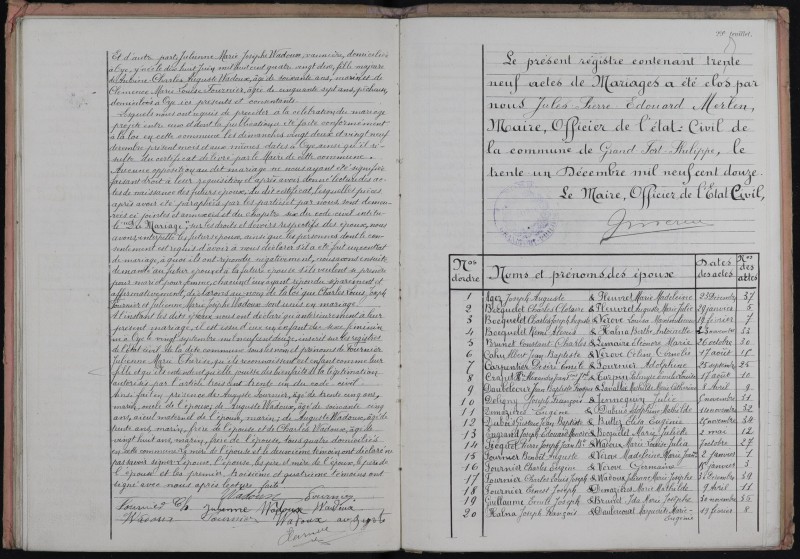 Et d'autre part, Julienne Marie Josèphe Wadoux, vannière, domiciliée
à Oye, y née le dix huit Juin mil huit cent quatre vingt dix, fille majeure
d'Antoine Charles Auguste Wadoux, âgé de soixante ans, marin, et de
Clémence Marie Louise Fournier, âgée de cinquante sept ans, pêcheuse,
domiciliés à Oye ici présents et consentants.
Lesquels nous ont requis de procéder à la célébration du mariage
projeté entre eux et dont les publications ont été faites conformément
à la loi en cette commune les dimanches vingt deux et vingt neuf
décembre présent mois et aux mêmes dates à Oye ainsi qu'il
résulte du certificat délivré par le Maire de cette commune.
Aucune opposition au dit mariage ne nous ayant été signifiée
faisant droit à leur réquisition et après avoir donné lecture des actes
de naissance des futurs époux, du dit certificat, lesquelles pièces
après avoir été paraphées par les parties et par nous sont demeurées
ci jointes et annexées et du chapitre six du code civil intitulé
"du Mariage" sur les droits et devoirs respectifs des époux, nous
avons interpellé les futurs époux, ainsi que les personnes dont le
consentement est requis d'avoir à nous déclarer s'il a été fait un contrat
de mariage, à quoi ils ont répondu négativement, nous avons ensuite
demandé au futur époux et à la future épouse s'ils veulent se prendre
pour mari et pour femme, chacun d'eux ayant répondu séparément et
affirmativement, déclarons au nom de la loi que Charles Louis Joseph
Fournier et Julienne Marie Josèphe Wadoux sont unis en mariage.
A l'instant les dits époux nous ont déclaré qu'antérieurement à leur
présent mariage, il est issu d'eux un enfant du sexe féminin
né à Oye le vingt septembre mil neuf cent douze, inscrit sur les registres
de l'état civil de la dite commune sous les nom et prénoms de Fournier
Julienne Marie Thérèse,
fille et qu'ils entendent qu'elle jouisse du bénéfice de la légitimation
autorisée par l'article trois cent trente un du code civil
Ainsi fait en présence de Auguste Fournier, âgé de trente cinq ans,
marin, de Auguste Wadoux, âgé de soixante cinq
ans, de Auguste Wadoux, âgé de
trente ans, marin, frère de l'épouse et de Charles Wadoux, âgé de
vingt huit ans, marin, frère de l'épouse, tous quatre domiciliés
en cette commune. La mère de l'époux et le deuxième témoin ont déclaré
ne pas savoir signer. L'époux, l'épouse, les père et mère de l'épouse, le père de
l'époux et les premier, troisième et quatrième témoins ont
signé avec nous après lecture faite.
Wadoux Fournier
Fournier Ch Julienne Wadoux Wadoux
Wadoux Fournier Wadoux
Le présent registre contenant trente
neuf actes de Mariages a été clos par
nous Jules Pierre Edouard Merlen,
Maire, Officier de l'état-Civil de
la commune de Grand Fort Philippe, le
trente un Décembre mil neuf cent douze.
Le Maire, Officier de l'Etat Civil,
Nos d'ordre Noms et prénoms des époux Dates des actes Nos des actes
1 Agez Joseph Auguste & Fleuret Marie Madeleine 23 Décembre 37
2 Becquelet Charles Clotaire & Fleuret Auguste Marie Julie 24 janvier 5
3 Becquelet & Vérove 19 février 7
4 Becquelet & Halna Berthe Antoinette
5 Brunet Constant Charles & Lemaire Eléonore Marie 26 octobre 30
6 Calin Albert Jean Baptiste & Vérove Céline Cornélie 17 août 18
7 Carpentier Désiré Emile & Fournier Adolphine 25 septembre 25
8 & Carpin 17 août 20
9 Dautelcour Jean Baptiste & Lavallée Mathilde Marie Catherine 1 Avril 9
10 Deligny Joseph François & Jennequin Julie 5 novembre 31
11 Eugène & Adolphine Mathilde 11 novembre 32
12 Jean Baptiste & Butez Elisa Eugénie 25 novembre 34
13 Joseph Edouard & Becquelet Marie Juliette 2 mai 12
14 & Wadoux Marie Louise Julia 7 octobre 27
15 Fournier Benoît Auguste & Véras Madeleine Marie 2 janvier 1
16 Fournier Charles Eugène & Vérove Germaine 15 janvier 3
17 Fournier Charles Louis Joseph & Wadoux Julienne Marie Josèphe 31 Décembre 39
18 Fournier Ernest Joseph & Marie Mathilde 9 Avril 11
19 Guillaume Emile Joseph & Brunet Ida Marie Josèphe 30 novembre 35
20 Halna Joseph François & Dautercourt Marguerite Marie Eugénie 19 février 8